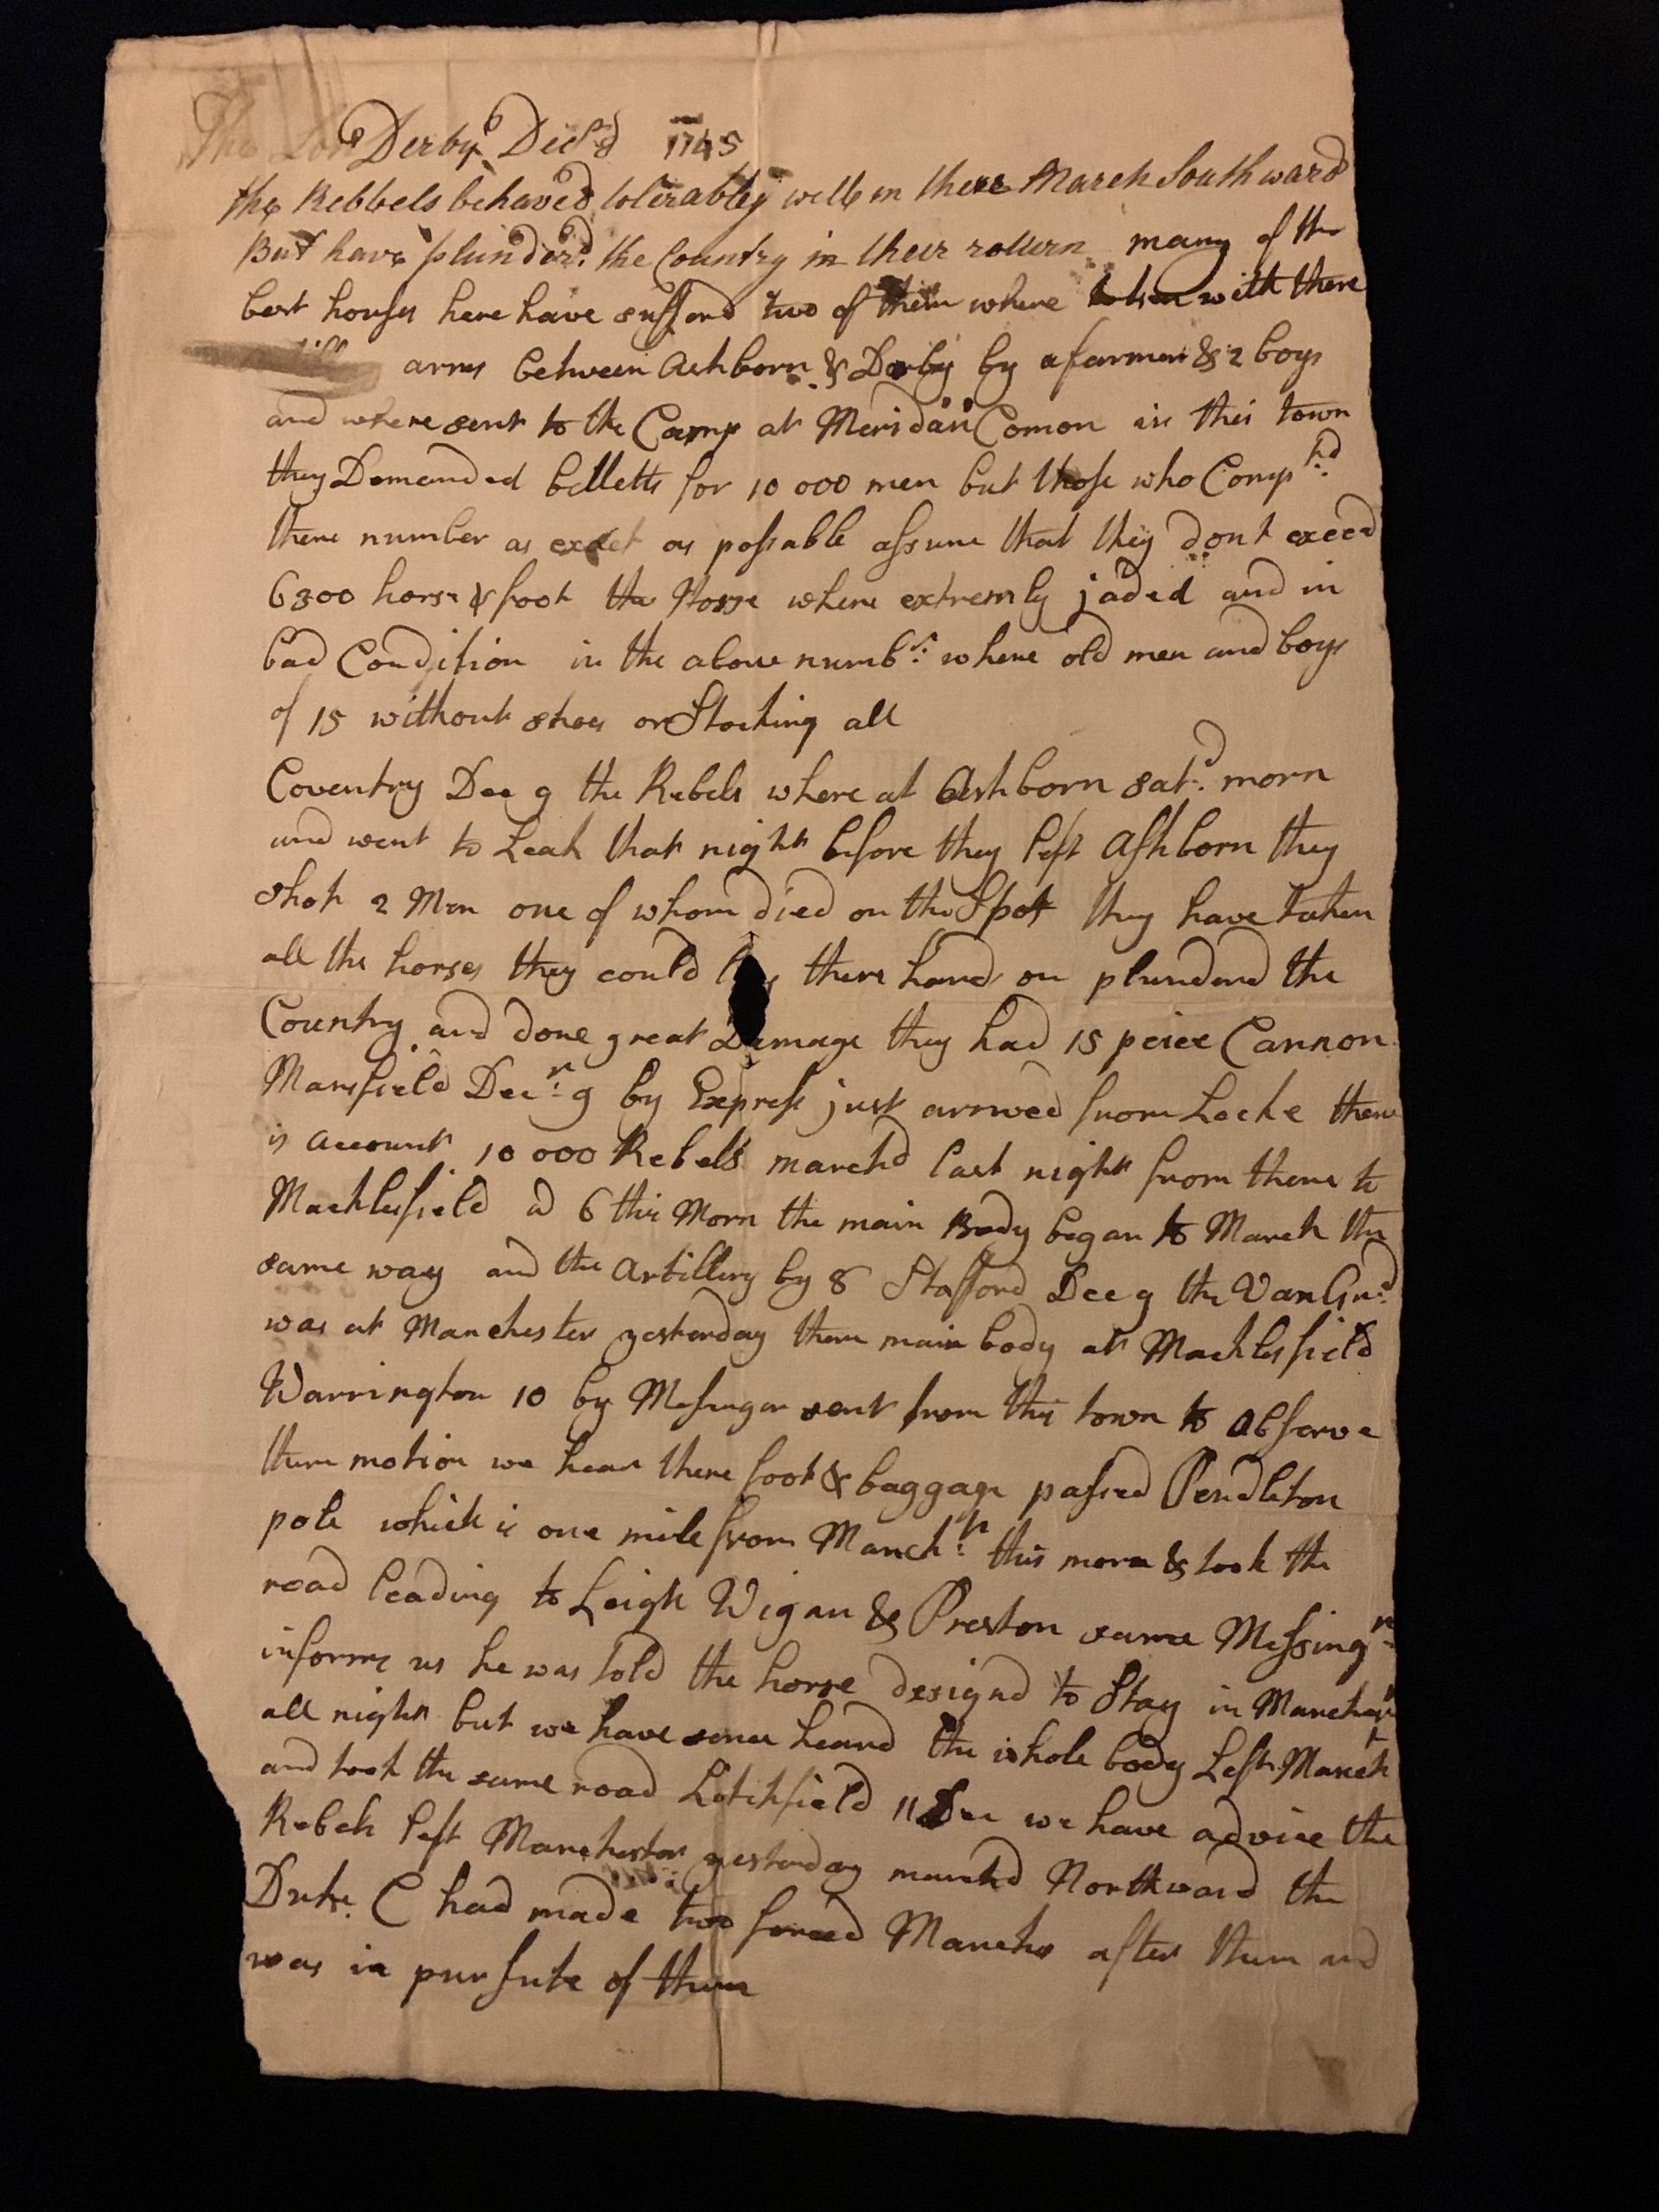 The Derby Decr 8 1745
the Rebbels behaved tolerably well in there March Southward
But have plunderd the Country in their return many of the
best houses here have sufferd two of them where taken with there
arms between Ashborn & Derby by a farmer & 2 boys
and where sent to the Camp at Meridan Comon in this town
they Demanded billetts for 10 000 men but those who Comp.td
there number as exact as possable assure that they dont exeed
6300 horse & foot the Horse where extremly jaded and in
bad Condition in the above numbr: where old men and boys
of 15 without shoes or Stocking all
Coventry Dec 9 the Rebels where at Ashborn Satd: morn
and went to Leak that night before they left Ashborn they
shot 2 Men one of whom died on the Spot they have taken
all the horses they could there hands on plunderd the
Country and done great Damage they had 15 peice Cannon
Mansfield Decr: 9 by Express just arived from Leeke there
is account 10 000 Rebels marchd last night from thence to
Macklesfield a 6 this Morn the main Body began to March the
same way and the Artillery by 8 Stafford Dec 9 the VanGrd:
was at Manchester yesterday there main body at Macklesfield
Warrington 10 by Messingar sent from this town to observe
there motion we hear there foot & baggage passed Pendleton
pole which is one mile from Manchr: this morn & took the
road leading to Leigh Wigan & Preston same Messingr:
informs us he was told the horse designd to Stay in Manchestr
all night but we have since heard the whole body Left Manchr
and took the same road Litchfield 11 Dec we have advice the
Rebels left Manchester yesterday marchd Northward the
Duke C had made two forced Marches after them and
was in pursute of them